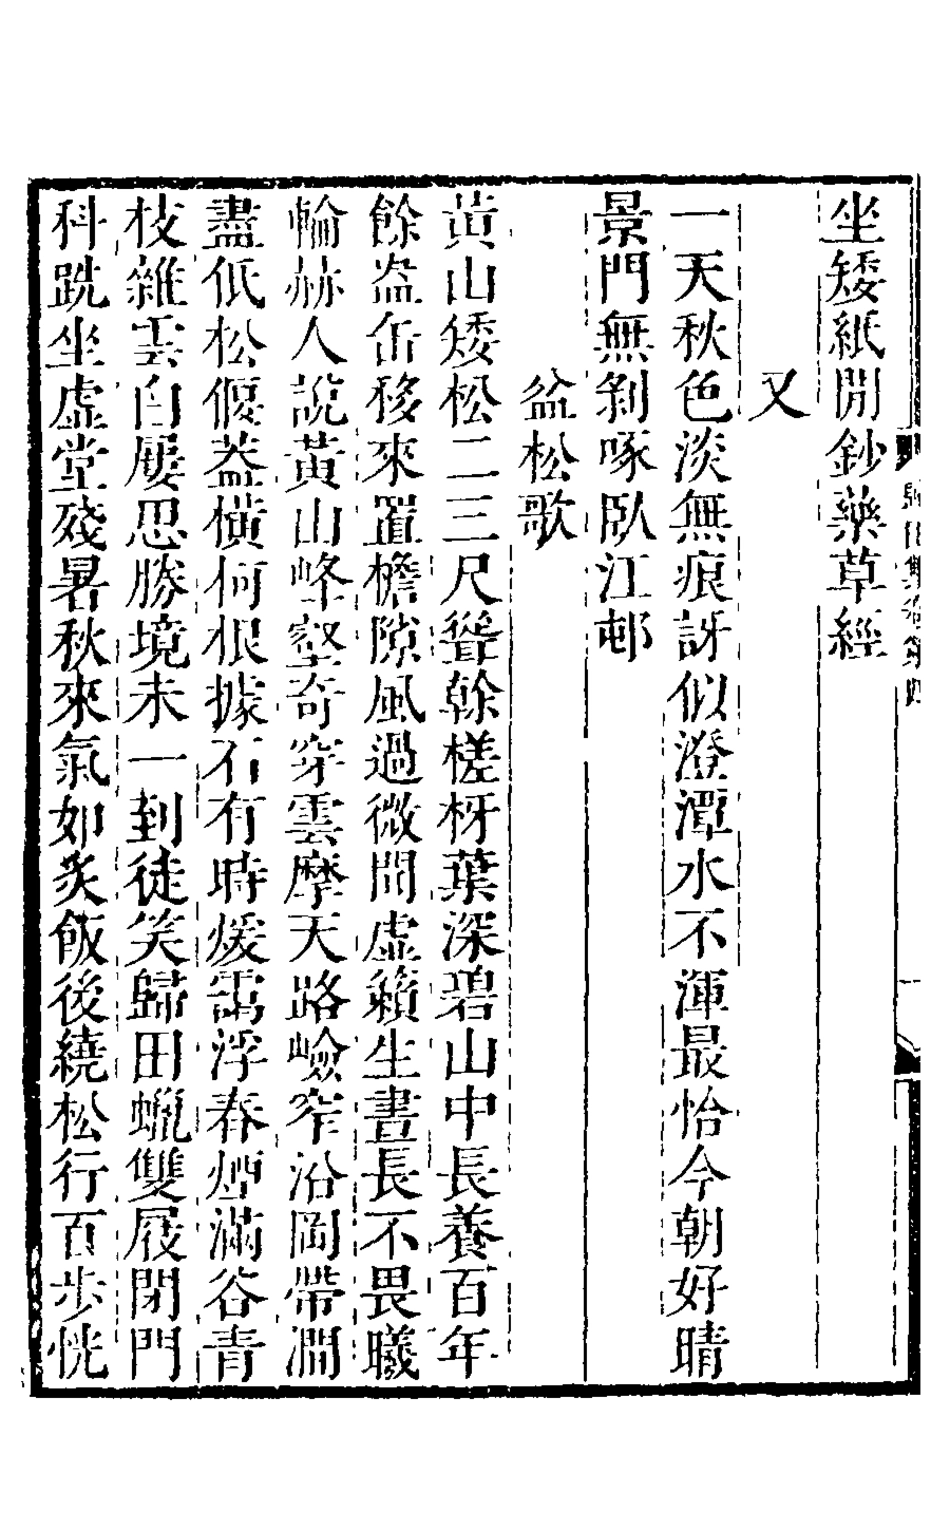 坐矮紙閒鈔藥草經
又
一天秋色淡無痕訝似澄潭水不渾最怡今朝好晴
景門無剝啄臥江邨
盆松歌
黃山矮松二三尺聳幹槎枒葉深碧山中長養百年
餘盎缶移來置檐隙風過微聞虛籟生晝長不畏曦
輪赫人說黃山峰壑奇穿雲摩天路嶮窄沿岡帶澗
盡低松偃蓋橫柯根據石有時煖靄浮春煙滿谷青
枝雜雲白屢思勝境未一到徒笑歸田蠟雙屐閉門
科跣坐虛堂殘暑秋來氣如炙飯後繞松行百步恍